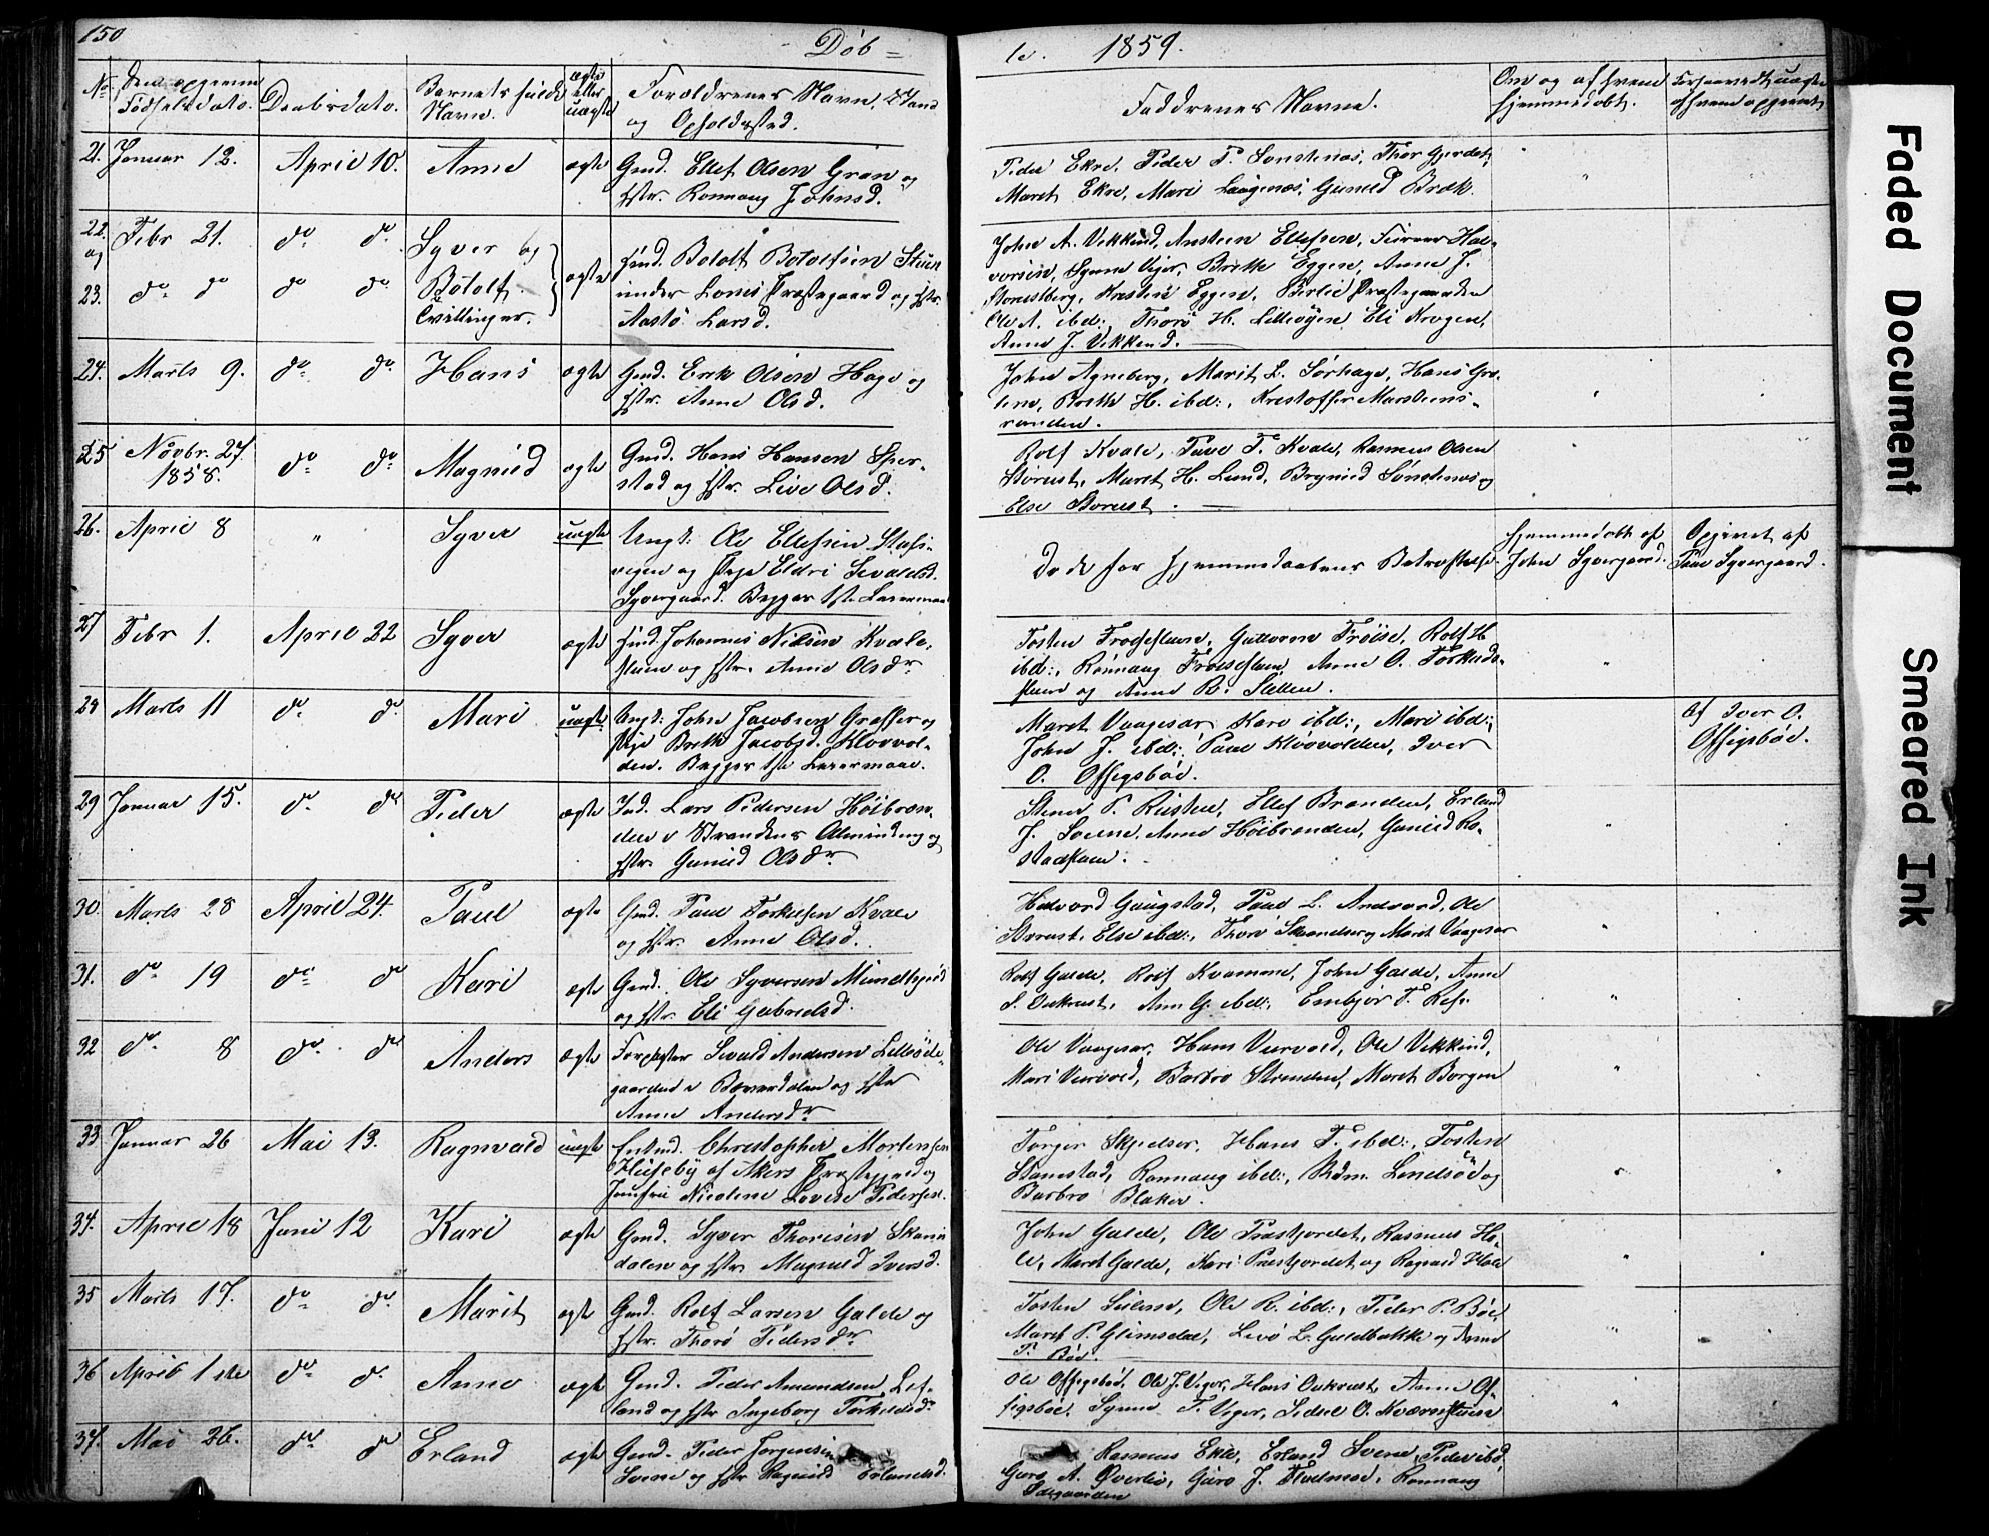 150
Döb = te. 1859.
No. Den opgivne Fødselsdato. Daabsdato. Barnets fulde Navn. ægte eller uægte Forældrenes Navn, Stand og Opholdssted. Faddrenes Navne. Om og af hvem hjemmedøbt. af hvem opgivet
21. Januar 12. April 10. Anne ægte Gmd. Ellef Olsen Gran og
Hstr. Ronnaug Johnsd.
Peder Ekre, Peder P. Sønstenes, Thor Gjerdet,
Marit Ekre, Mari Laugenæs, Gunild Bræk.
22. og 23. Febr 21. do do Syver og
do do do do Botolf Tvillinger. ægte
Hmd. Botolf Botolfsen Stuen
under Loms Præstegaard og Hstr.
Aastø Larsd.
John A. Vekkend, Ansteen Ellefsen, Hal-
vorsen, Synne Veger, Brithe Eggen, Anne J.
Storustberg, Kristen Eggen, Præstegaarden
Ole A. ibd:, Thorø H. Lilleøyen Eli Krogen,
Anne J. Vekkend.
24. Marts 9. do do Hans ægte Gmd. Erik Olsen Hage og
Hstr. Anne Olsd.
John Agneberg, Marit L. Sørhage, Hans Gro-
Brith H. ibd:, Kristoffer Marsteins-
randen.
25 Novbr. 27. 1858. do do Magnild ægte Gmd. Hans Hansen Sper-
stad og Hstr. Live Olsd.
Rolf Kvale, Paul T. Kvale, Rasmus Olsen
Storust, Marit H. Lund, Brynild Sønstenes og
Else Storust.
26. April 8 " Syver uægte Ungk: Ole Ellefsen
vegen og Pige Eldri Sevaldsd.
Syvergaard. Begges 1ste Leiermaal
Døde før Hjemmedaabens Bekræftelse.
Hjemmedøbt af John Syvergaard.
Opgivet af Paul Syvergaard.
27 Febr 1. April 22 Syver ægte Hmd. Johannes Nilsen Kvale-
stuen og Hstr. Anne Olsdr
Tosten Guttorm Frøise, Rolf H
ibd:, Rønnaug Anne O.
stuen og Anne R.
28 Marts 11 do do Mari uægte Ungk: John Jacobsen Graffer og
Pige Brith Jacobsd. Kløvvol-
den. Begges 1ste Leiermaal.
Marit Vaagesar, Kari ibd:, Mari ibd:,
John J. ibd:, Paul Kløvvolden, Iver
O. Offigsbøe.
Af Iver O.
Offigsbøe.
29 Januar 15. do do Peder ægte Ind. Lars Pedersen Høibran-
den i Strandens Alminding og
Hstr. Gunild Olsdr
Stener P. Rusten, Ellef Branden, Erland
J. Soene, Anne Høibranden, Gunild Ro-
30. Marts 28 April 24. Paul ægte Gmd. Paul Torkelsen Kvale
og Hstr. Anne Olsd.
Halvord Gaugstad, Paul L. Andvord, Ole
Storust, Else ibd:, Thorø og Marit Vaagesar
31. do 19 do do Kari ægte Gmd. Ole Syversen
og Hstr. Eli Gabrielsd.
Rolf Galde, Rolf Kvamme, John Galde, Anne
S. Ourust, Ann G. ibd:, Embjør T.
32 do 8 do do Anders ægte Forpagter Sevald Andersen Lilleøde-
gaarden i Bøverdalen og Hstr
Anne Andersdr
Ole Vaagesar, Hans Værvold, Ole Vekkend,
Mari Værvold, Barbro Stranden, Marit Borgen
33 Januar 26 Mai 13. Ragnvald uægte Enkmd. Christopher Mortensen
Huseby af Akers Præstegjeld og
Jomfru Nicoline Lovise Pedersen.
Torger Skjelser, Hans T. ibd:, Tosten
Stamstad, Ronnaug ibd:, Mdm. Lindsøe og
Barbro Blaker.
34. April 18 Juni 12 Kari ægte Gmd. Syver Thoresen
dalen og Hstr. Magnild Iversd.
John Galde, Ole Præstjordet, Rasmus Ho-
le, Marit Galde, Kari Præstjordet og Ragnild Hole
35 Marts 17. do do Marit ægte Gmd. Rolf Larsen Galde og
Hstr. Thorø Pedersdr
Tosten Ole R. ibd:, Peder P. Bøe,
Marit P. Glimsdal, Livø L. Guldbakke og Anne
P. Bøe.
36 April 1ste do do Anne ægte Gmd. Peder Amundsen Lef-
land og Hstr Ingeborg Torkildsd.
Ole Offigsbøe, Ole J. Veger, Hans Ourust, Anne Of-
figsbøe, Synne T. Veger, Sidsel O. Kværnstuen
37. Mai 26. do do Erland ægte Gmd. Peder Jørgensen
Soene og Hstr Ragnild Erlandsd.
Rasmus Ekre, Erland Soene, Peder ibd,
Guro A. Øverlie, Guro J. Ronnaug
Ødegaarden
Faded Document
Smeared Ink